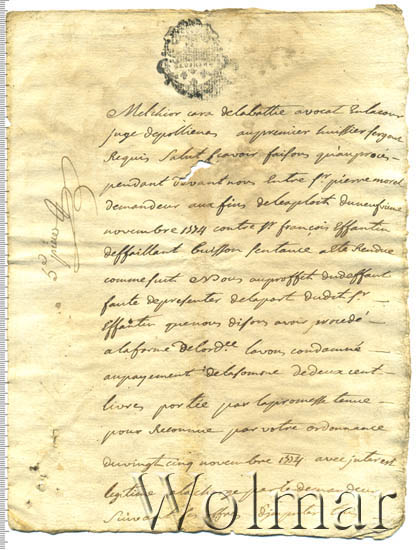 Melchior cara delabattie avocat Enlacour
juge depollienas aupremier huissier sergent
Requis Salut scavoir faisons qu'auproces
pendant Pardevant nous Entre Sr pierre morel
demandeur aux fins delexploit duneufvieme
novembre 1774 contre Sr françois Effantin
deffaillant Sentance a Ete Rendue
commesuit Nous auproffit dudeffaut
faute depresenter delapart dudit Sr
Effantin quenous disons avoir procedé
alaforme Delordce lavons condamné
aupayement delasomme dedeux cent
livres portée par lapromesse tenue
pour Reconnue par votre ordonnance
duvingt cinq novembre 1774 avec interest
legitime alacharge par ledemandeur
Suivant Ses offres
Wolmar